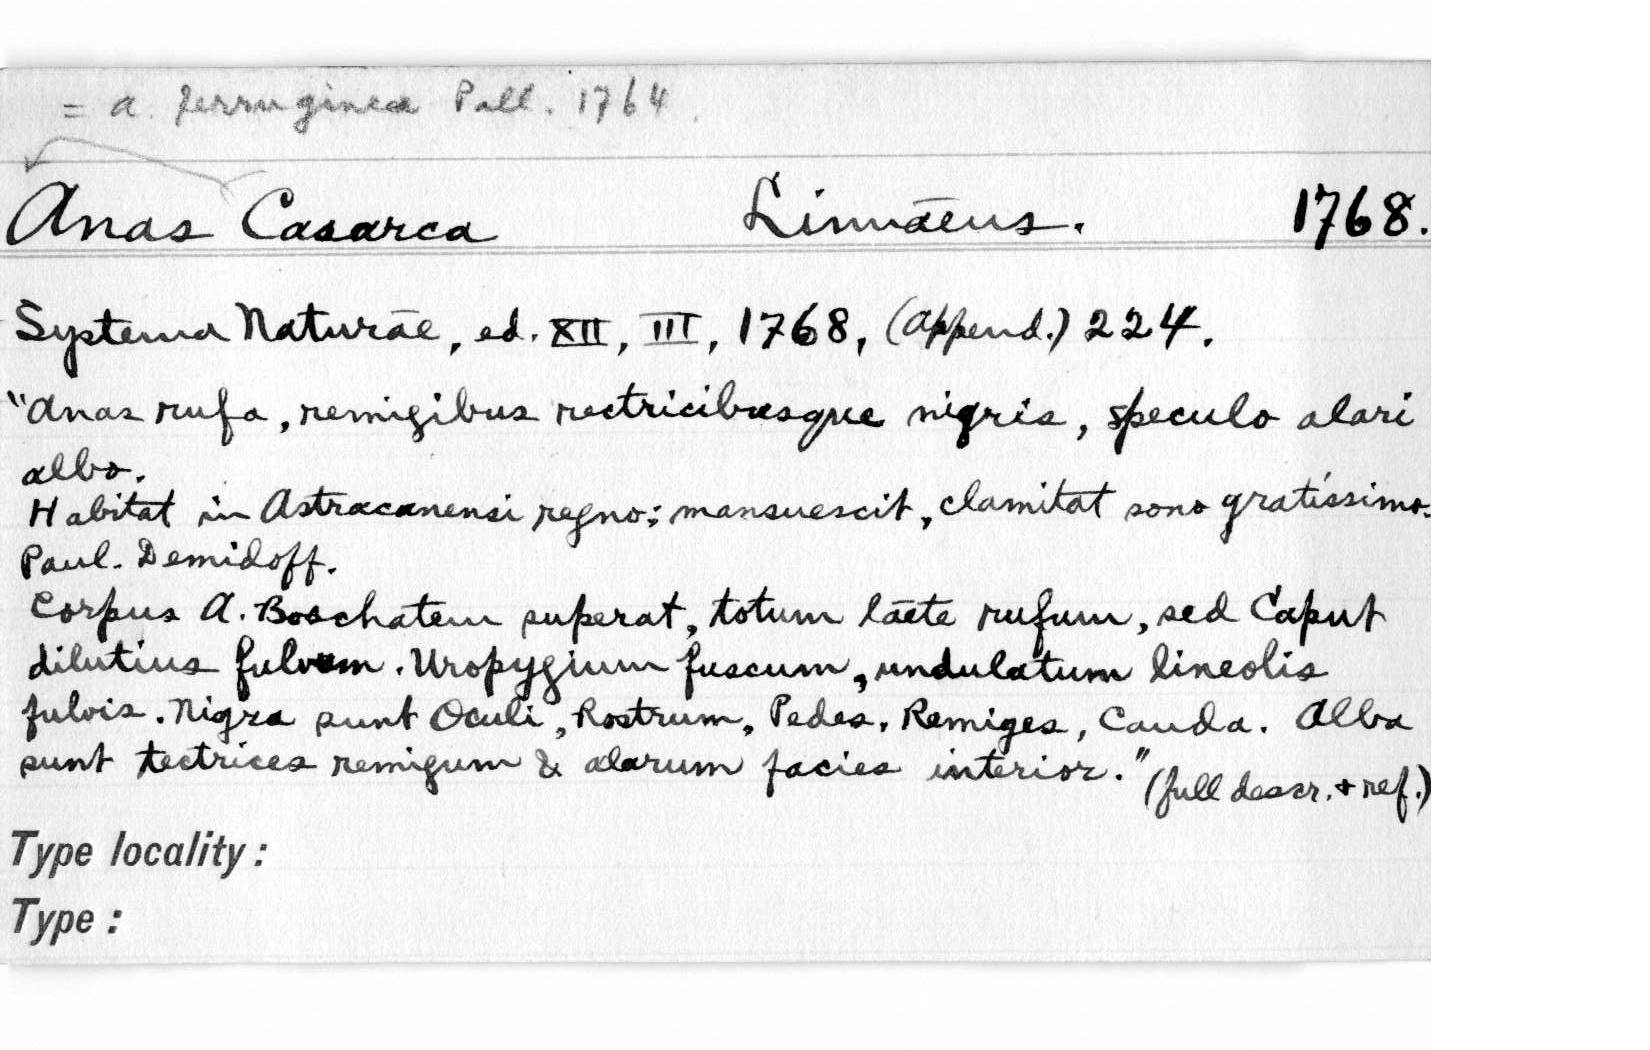 = A. ferruginea Pall. 1764.
Anas Casarca Linnāeus. 1768.
Systema Naturāe, ed. XII, III, 1768, (Append.) 224.
"Anas rufa, remigibus rectricibusque nigris, speculo alari
albo.
Habitat in Astracanensi regno; mansuescit, clamitat sono gratissimo.
Paul. Demidoff.
Corpus A. Boschatem superat, totum lāete rufum, sed Caput
dilutius fulvum. Uropygium fuscum, undulatum lineolis
fulvis. Nigra sunt Oculi, Rostrum, Pedes, Remiges, Cauda. Alba
sunt tectrices remigum & alarum facies interior."
(full descr. + ref.)
Type locality :
Type :